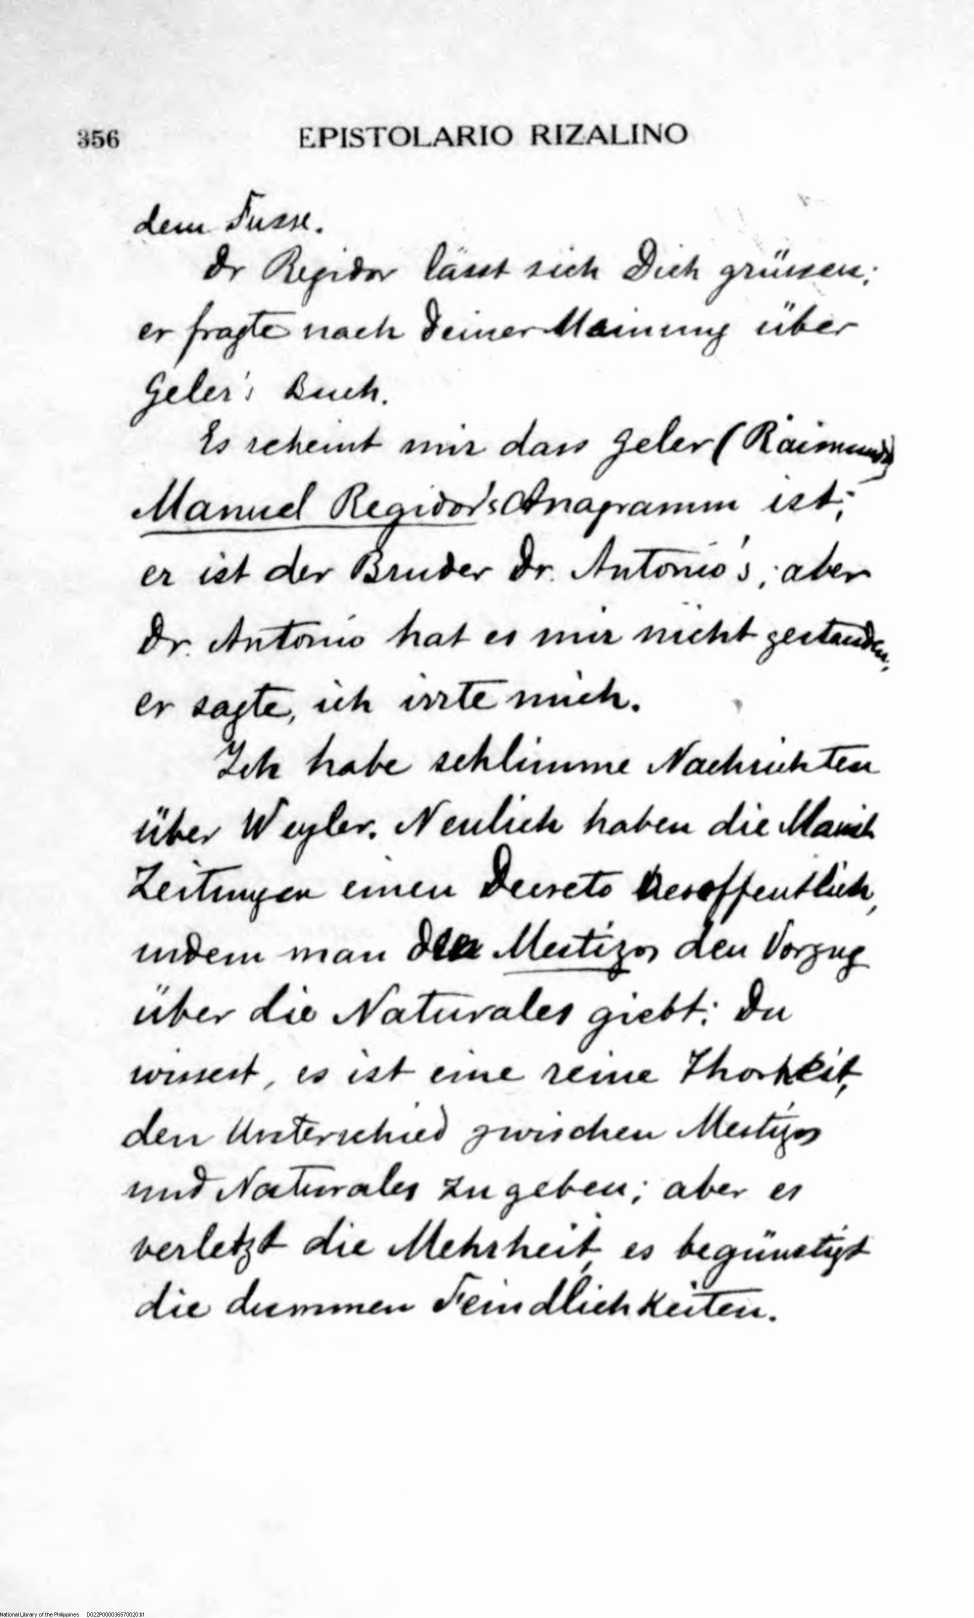 356 EPISTOLARIO RIZALINO
dem Fusse.
Dr Regidor lässt sich Dich grüssen;
er fragte nach deiner Mainung über
Geler's Buch.
Es scheint mir dass Geler (Raimundo)
Manuel Regidor's Anagramm ist;
er ist der Bruder Dr. Antonio's; aber
Dr. Antonio hat es mir nicht gestanden,
er sagte, ich irrte mich.
Ich habe schlimme Nachrichten
über Weyler. Neulich haben die
Zeitungen einen Decreto veroffentlich,
indem man den Mestizos den Vorzug
über die Naturales giebt: Du
wissest, es ist eine reine Thorheit,
den Unterschied zwischen Mestizos
und Naturales zu geben; aber es
verletzt die Mehrheit, es begünstigt
die dummen Feindlichkeiten.
National Library of the Philippines